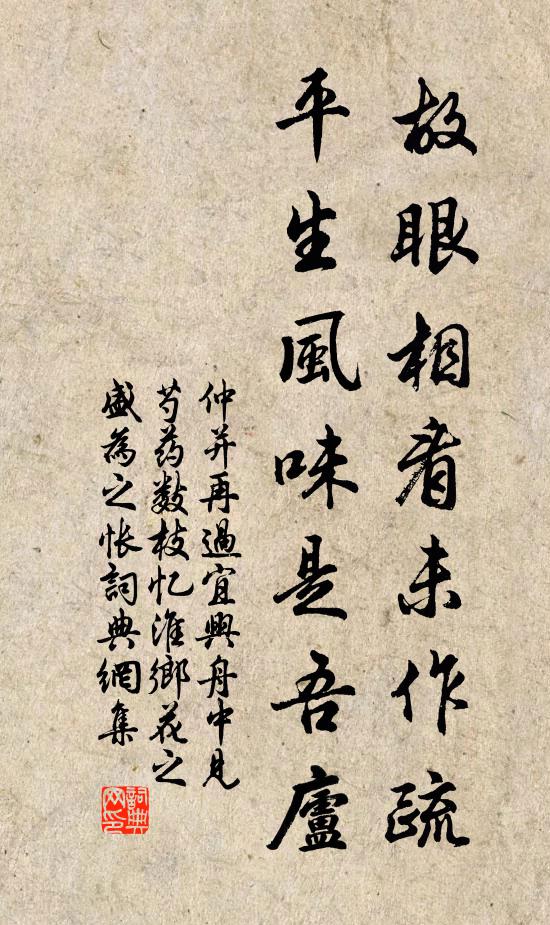 故眼相看未作疏
平生風味是吾廬
仲并再過宜興舟中見
芍药数枝忆淮鄉花之
盛為之悵詞典網集
詞典网印